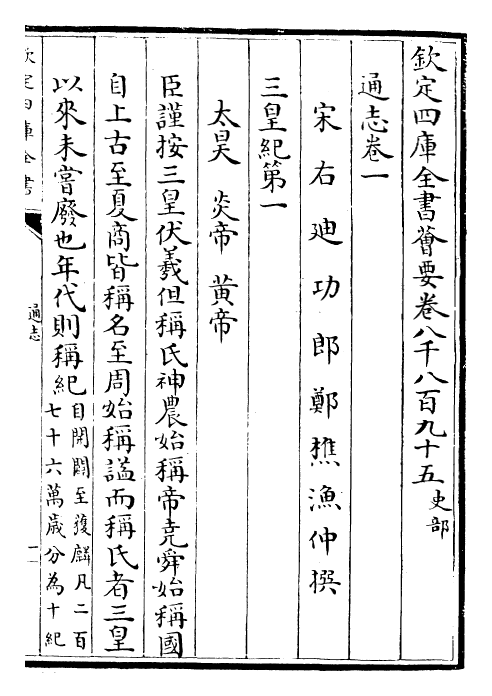 欽定四庫全書薈要卷八千八百九十五 史部
通志卷一
宋右迪功郎鄭樵漁仲撰
三皇紀第一
太昊 炎帝 黃帝
臣謹按三皇伏羲但稱氏神農始稱帝堯舜始稱國
自上古至夏商皆稱名至周始稱諡而稱氏者三皇
以來未嘗廢也年代則稱紀 自開闢至獲麟凡二百
七十六萬歲分為十紀
欽定四庫全書
通志
一